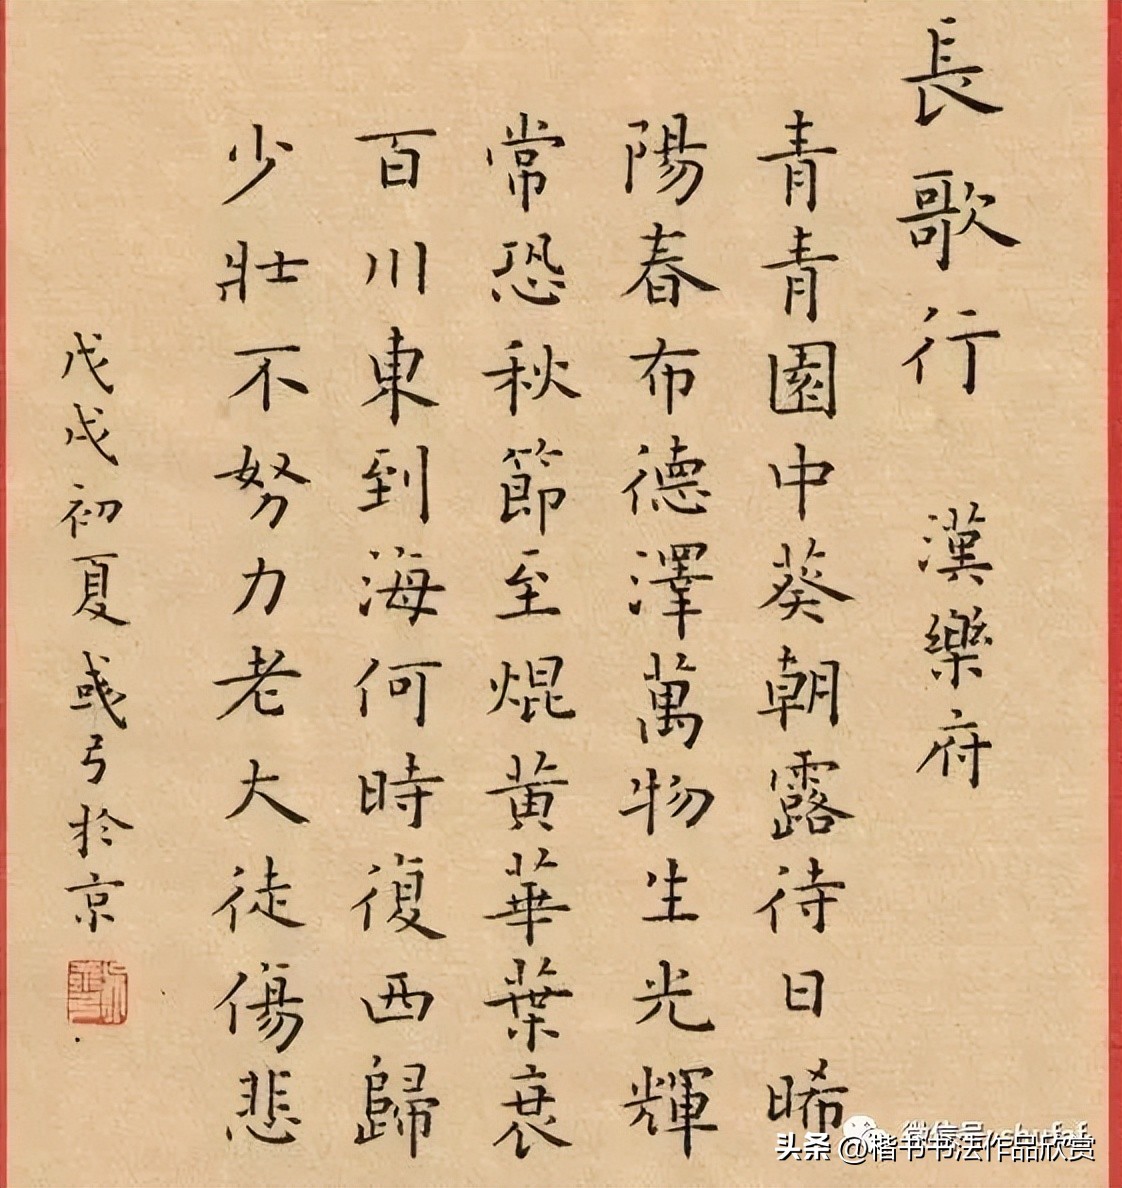 長歌行 漢樂府
青青園中葵朝露待日晞
陽春布德澤萬物生光輝
常恐秋節至焜黃華葉衰
百川東到海何時復西歸
少壯不努力老大徒傷悲
戊戌初夏彧弓於京
头条 @楷书书法作品欣赏